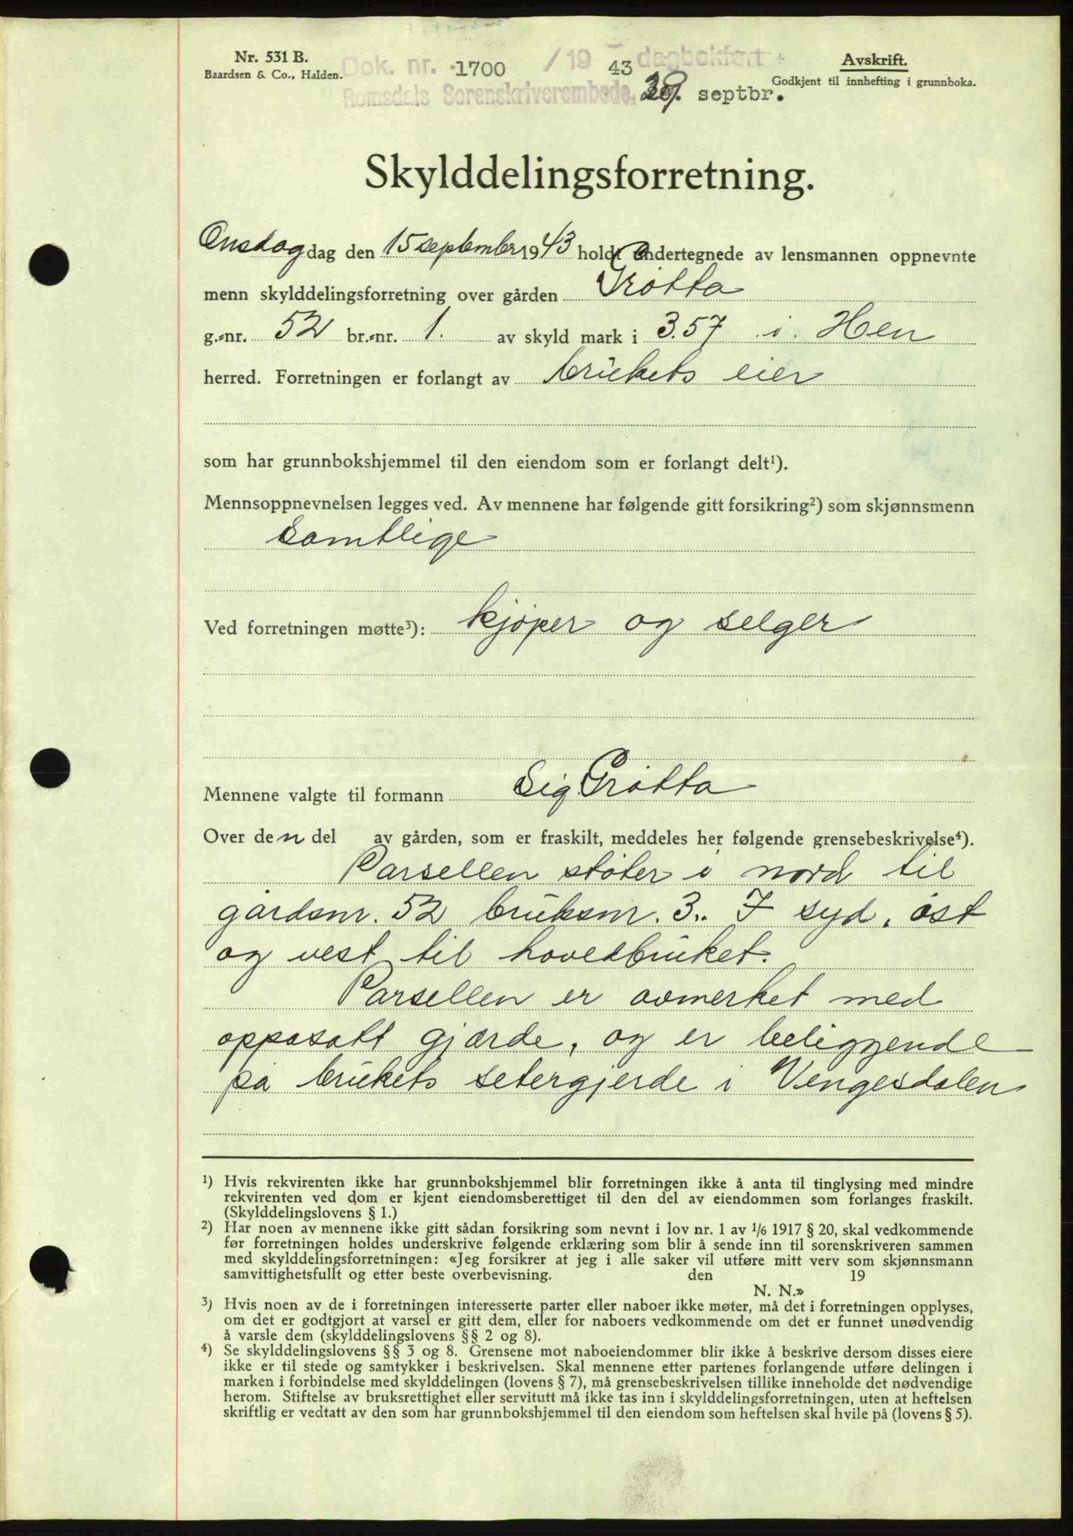 Nr. 531 B.
Baardsen & Co., Halden.
Dok. nr. 1700 / 19 43 dagbokført
Romsdals Sorenskriverembede, septbr.
Avskrift.
Godkjent til innhefting i grunnboka.
Skylddelingsforretning.
Onsdag dag den 15 september 1943 holdt undertegnede av lensmannen oppnevnte
menn skylddelingsforretning over gården Grøtta
g.-nr. 52 br.-nr. 1. av skyld mark i 3.57 i Hen
herred. Forretningen er forlangt av brukets eier
som har grunnbokshjemmel til den eiendom som er forlangt delt¹).
Mennsoppnevnelsen legges ved. Av mennene har følgende gitt forsikring²) som skjønnsmenn
samtlige
Ved forretningen møtte³): kjøper og selger
Mennene valgte til formann Sig. Grøtta
Over den del av gården, som er fraskilt, meddeles her følgende grensebeskrivelse⁴).
Parsellen støter i nord til
gårdsnr. 52 bruksnr. 3. I syd, øst
og vest til hovedbruket.
Parsellen er avmerket med
oppasatt gjærde, og er beliggende
på brukets setergjerde i Vengesdalen
¹) Hvis rekvirenten ikke har grunnbokshjemmel blir forretningen ikke å anta til tinglysing med mindre
rekvirenten ved dom er kjent eiendomsberettiget til den del av eiendommen som forlanges fraskilt.
(Skylddelingslovens § 1.)
²) Har noen av mennene ikke gitt sådan forsikring som nevnt i lov nr. 1 av 1/6 1917 § 20, skal vedkommende
før forretningen holdes underskrive følgende erklæring som blir å sende inn til sorenskriveren sammen
med skylddelingsforretningen: «Jeg forsikrer at jeg i alle saker vil utføre mitt verv som skjønnsmann
samvittighetsfullt og etter beste overbevisning. den 19
N. N.»
³) Hvis noen av de i forretningen interesserte parter eller naboer ikke møter, må det i forretningen opplyses,
om det er godtgjort at varsel er gitt dem, eller for naboers vedkommende om det er funnet unødvendig
å varsle dem (skylddelingslovens §§ 2 og 8).
⁴) Se skylddelingslovens §§ 3 og 8. Grensene mot naboeiendommer blir ikke å beskrive dersom disses eiere
ikke er til stede og samtykker i beskrivelsen. Skal mennene etter partenes forlangende utføre delingen i
marken i forbindelse med skylddelingen (lovens § 7), må grensebeskrivelsen tillike inneholde det nødvendige
herom. Stiftelse av bruksrettighet eller servitutt må ikke tas inn i skylddelingsforretningen, uten at heftelsen
skriftlig er vedtatt av den som har grunnbokshjemmel til den eiendom som heftelsen skal hvile på (lovens § 5).